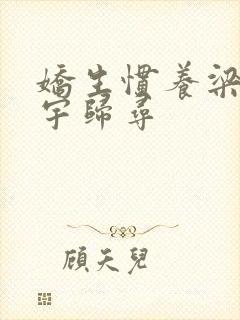 嬌生慣養梁
宇歸尋
顧天兒